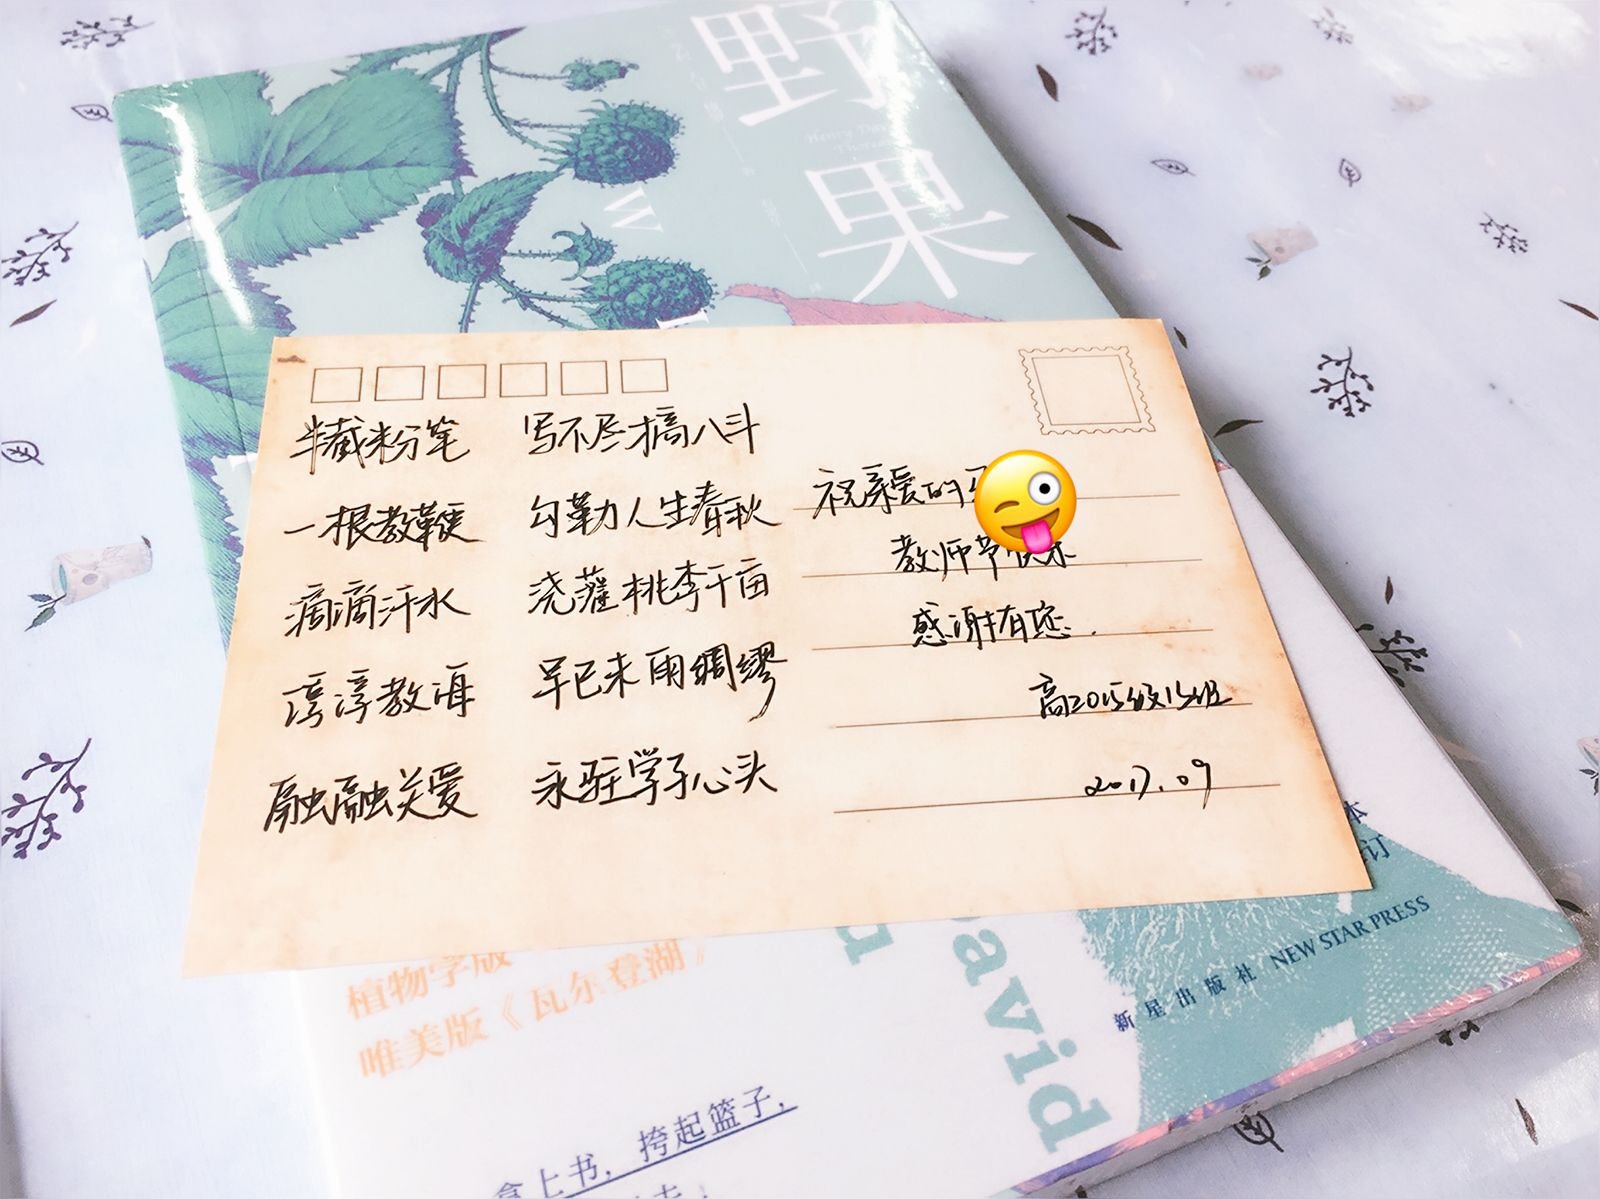 野果
Henry David
Thoreau
W
半截粉笔 写不尽才高八斗
一根教鞭 勾勒人生春秋
滴滴汗水 浇灌桃李千亩
谆谆教诲 早已未雨绸缪
融融关爱 永驻学子心头
祝亲爱的
教师节快乐
感谢有您.
高2015级15班
2017.09
本
订
avid
植物学版
唯美版《瓦尔登湖》
新星出版社 NEW STAR PRESS
拿上书，挎起篮子，